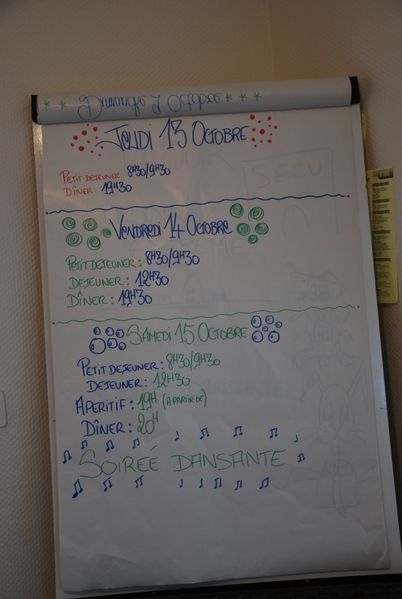 Dimanche 2 Octobre
JEUDI 13 OCTOBRE
PETIT DEJEUNER : 8H30/9H30
DÎNER : 19H30
VENDREDI 14 OCTOBRE
PETIT DEJEUNER : 8H30/9H30
DEJEUNER : 12H30
DÎNER : 19H30
SAMEDI 15 OCTOBRE
PETIT DEJEUNER : 8H30/9H30
DEJEUNER : 12H30
APERITIF : 19H (A PARTIR DE)
DÎNER : 20H
SOIRÉE DANSANTE